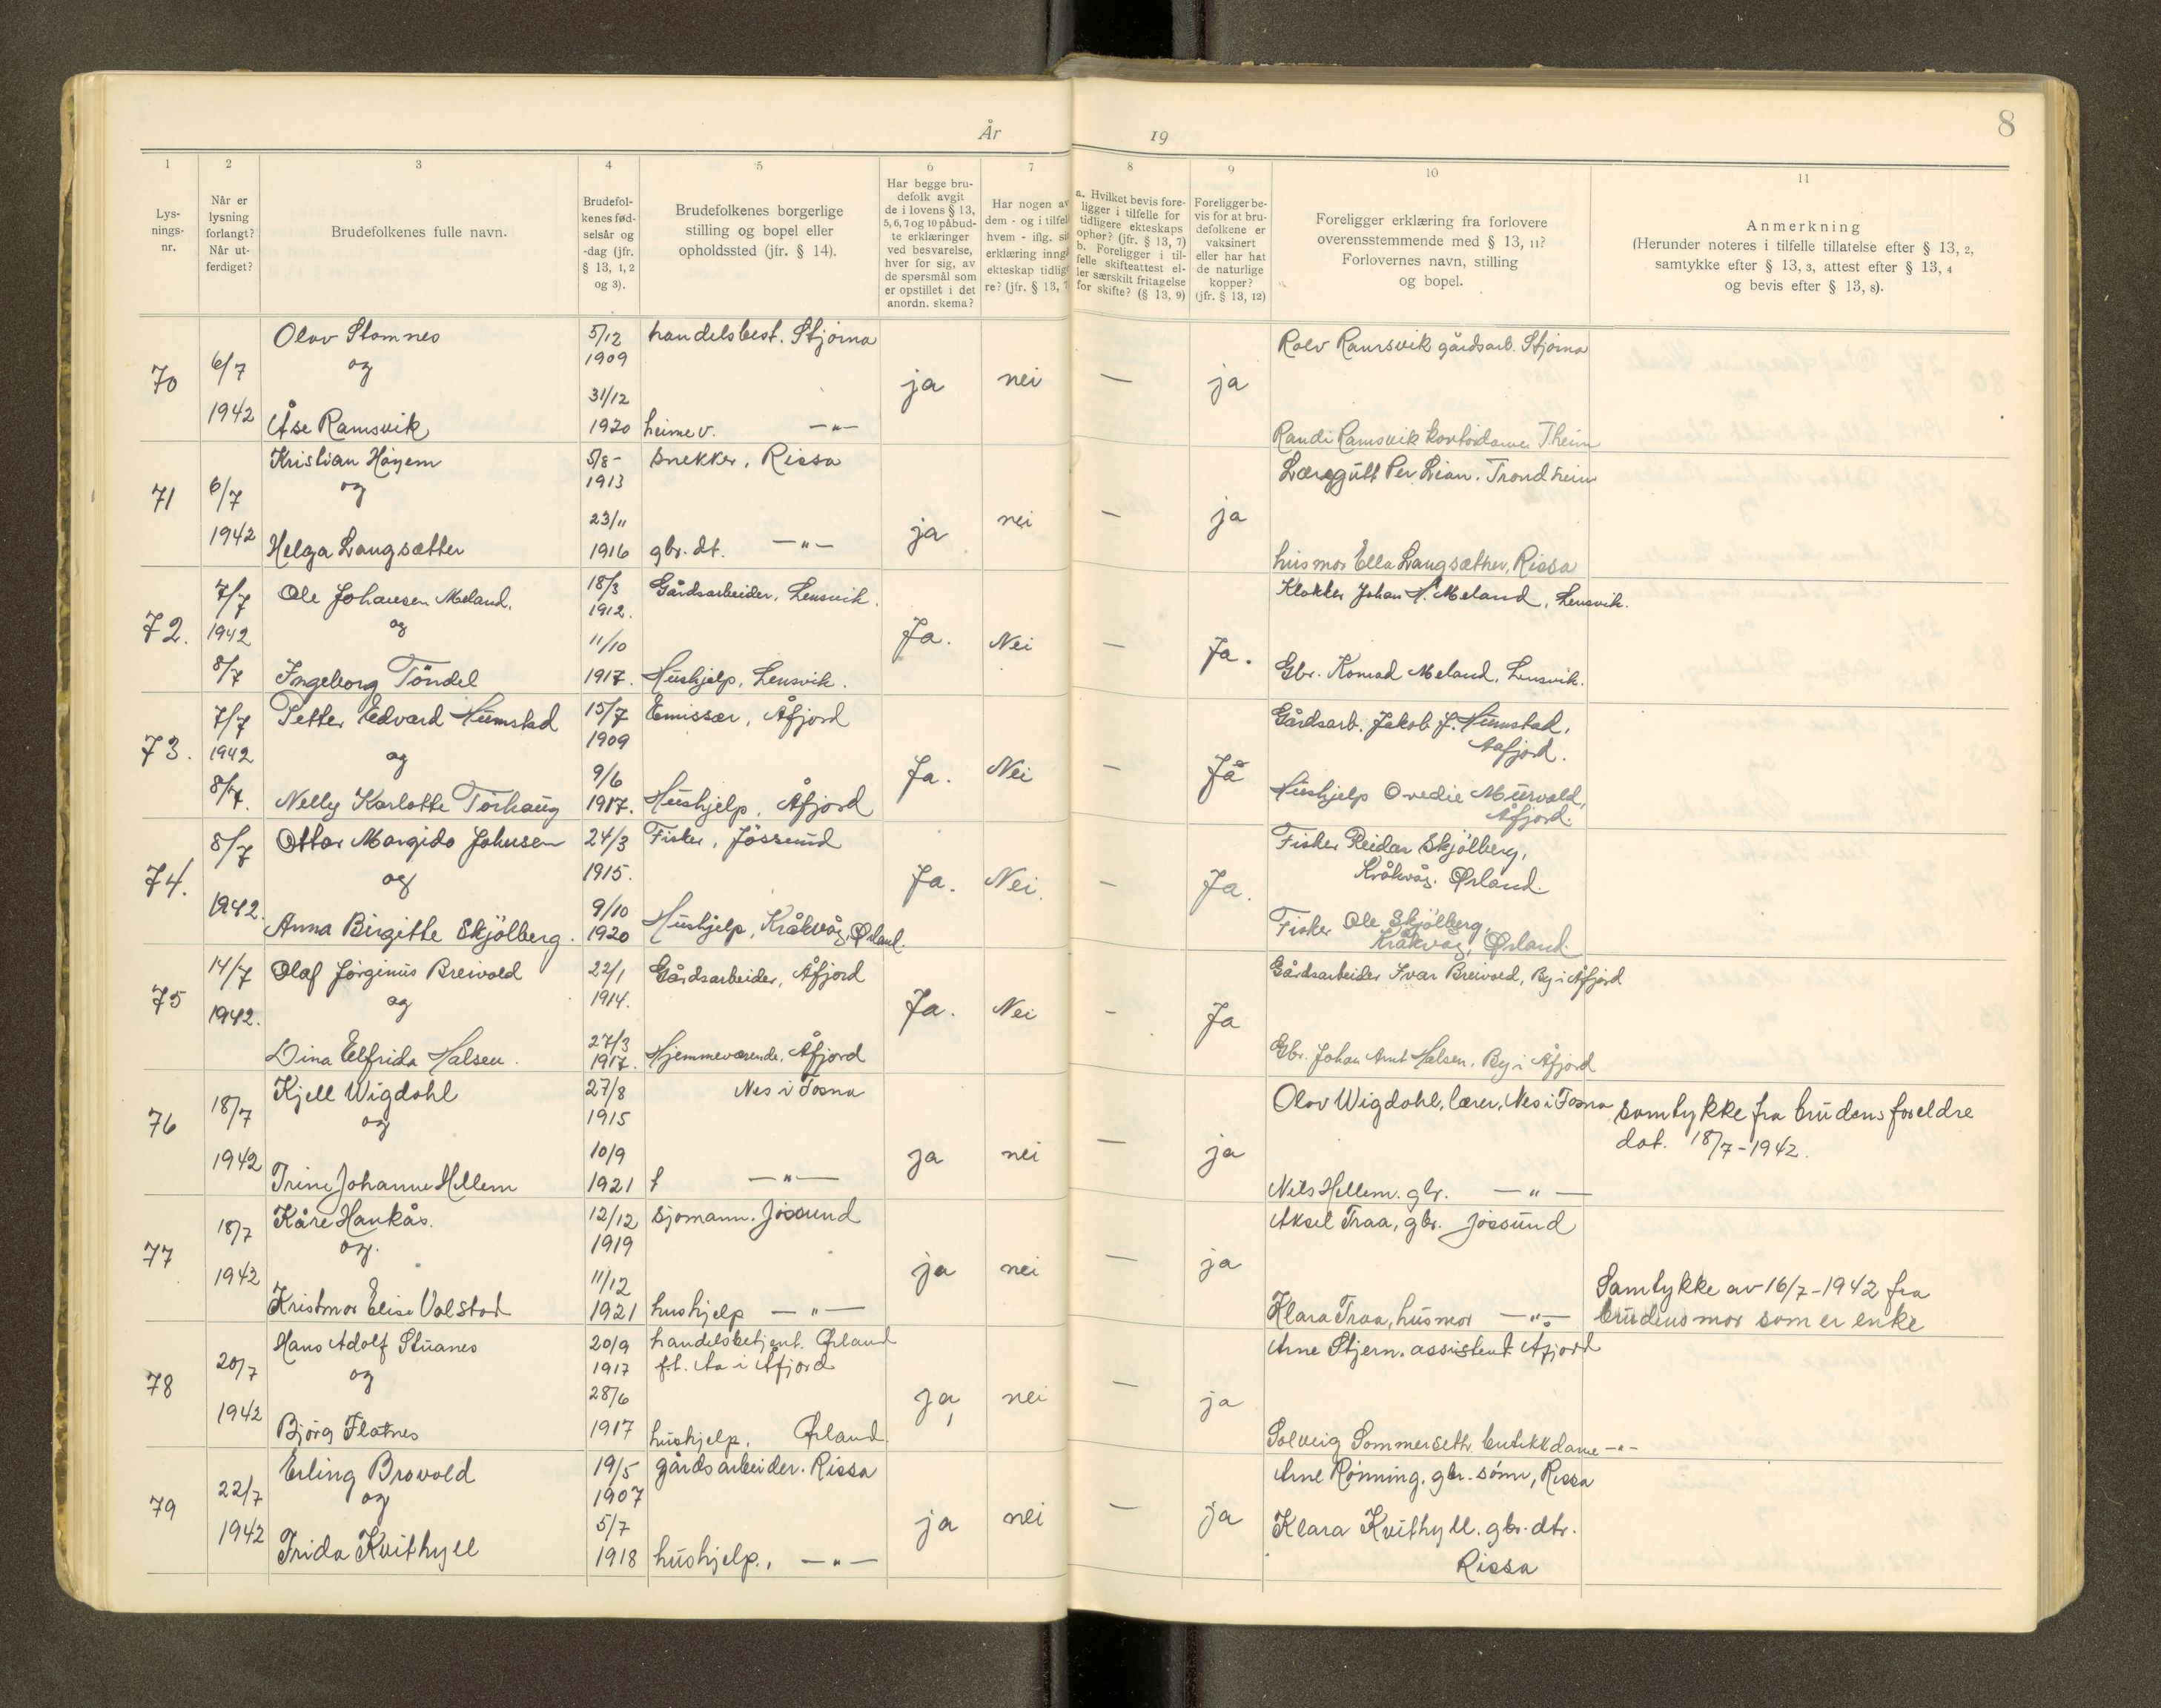 År 19
8
1
2
3
4
5
6
7
8
9
10
11
Lys-
nings-
nr.
Når er
lysning
forlangt?
Når ut-
ferdiget?
Brudefolkenes fulle navn.
Brudefol-
kenes fød-
selsår og
-dag (jfr.
§ 13, 1, 2
og 3).
Brudefolkenes borgerlige
stilling og bopel eller
opholdssted (jfr. § 14).
Har begge bru-
defolk avgit
de i lovens § 13,
5, 6, 7 og 10 påbud-
te erklæringer
ved besvarelse,
hver for sig, av
de spørsmål som
er opstillet i det
anordn. skema?
Har nogen av
dem - og i tilfel
hvem - iflg. si
erklæring inng
ekteskap tidlig
re? (jfr. § 13, 7
a. Hvilket bevis fore-
ligger i tilfelle for
tidligere ekteskaps
ophør? (jfr. § 13, 7)
b. Foreligger i til-
felle skifteattest el-
ler særskilt fritagelse
for skifte? (§ 13, 9)
Foreligger be-
vis for at bru-
defolkene er
vaksinert
eller har hat
de naturlige
kopper?
(jfr. § 13, 12)
Foreligger erklæring fra forlovere
overensstemmende med § 13, 11?
Forlovernes navn, stilling
og bopel.
Anmerkning
(Herunder noteres i tilfelle tillatelse efter § 13, 2,
samtykke efter § 13, 3, attest efter § 13, 4
og bevis efter § 13, 8).
70
6/7
1942
Olav Stamnes
og
Åse Ramsvik
5/12
1909
31/12
1920
handelsbest. Stjørna
heimev. —"—
ja
nei
—
ja
Rolv Ramsvik gårdsarb. Stjørna
Randi Ramsvik kontordame Theim
71
6/7
1942
Kristian Høyem
og
Helga Langsætter
5/8-
1913
23/11
1916
snekker, Rissa
gbr. dt. —"—
ja
nei
—
ja
Læregutt Per Lian. Trondheim
husmor Ella Langsæther, Rissa
72.
7/7
1942
8/7
Ole Johansen Meland.
og
Ingeborg Töndel
18/3
1912.
11/10
1917.
Gårdsarbeider, Lensvik.
Hushjelp, Lensvik.
Ja.
Nei
—
Ja.
Klokker Johan H. Meland, Lensvik.
Gbr. Konrad Meland, Lensvik.
73.
7/7
1942
8/7.
Petter Edvard Humstad
og
Nelly Karlotte Torhaug
15/7
1909
9/6
1917.
Emissær, Åfjord
Hushjelp, Åfjord
Ja.
Nei
—
Ja
Gårdsarb. Jakob J. Humstad,
Aafjord.
Hushjelp Ovedie Murvold,
Åfjord.
74.
8/7
1942.
Ottar Margido Johnsen
og
Anna Birgitte Skjölberg.
24/3
1915.
9/10
1920
Fisker, Jössund
Hushjelp, Kråkvåg, Ørland.
Ja.
Nei.
—
Ja.
Fisker Reidar Skjölberg,
Kråkvåg. Ørland.
Fisker Ole Skjölberg,
Kråkvåg, Ørland.
75
14/7
1942.
Olaf Jørginus Breivold
og
Dina Elfrida Halsen.
22/1
1914.
27/3
1917.
Gårdsarbeider, Åfjord
Hjemmeværende, Åfjord
Ja.
Nei
-
Ja
Gårdsarbeider Ivar Breivold, By i Åfjord
Gbr. Johan Arnt Halsen, By i Åfjord
76
18/7
1942
Kjell Wigdahl
og
Trine Johanne Hellem
27/8
1915
10/9
1921
Nes i Fosna
f —"—
ja
nei
—
ja
Olav Wigdahl, lærer, Nes i Fosna
Nils Hellem. gbr. —"—
samtykke fra brudens foreldre
dat. 18/7-1942.
77
18/7
1942
Kåre Haukås.
og.
Kristmor Elise Valstad
12/12
1919
11/12
1921
sjømann. Jøssund
hushjelp —"—
ja
nei
—
ja
Aksel Traa, gbr. Jøssund
Klara Traa, husmor —"—
Samtykke av 16/7-1942 fra
brudens mor som er enke
78
20/7
1942
Hans Adolf Stuanes
og
Bjørg Flatnes
20/9
1917
28/6
1917
handelsbetjent. Ørland
ft. Aa i Åfjord
hushjelp, Ørland
ja,
nei
—
ja
Arne Stjern. assistent Åfjord
Solveig Sommerseth. butikkdame —"—
79
22/7
1942
Erling Brovold
og
Frida Kvithyll
19/5
1907
5/7
1918
gårdsarbeider. Rissa
hushjelp., —"—
ja
nei
—
ja
Arne Rønning. gbr. sønn, Rissa
Klara Kvithyll. gbr. dtr.
Rissa